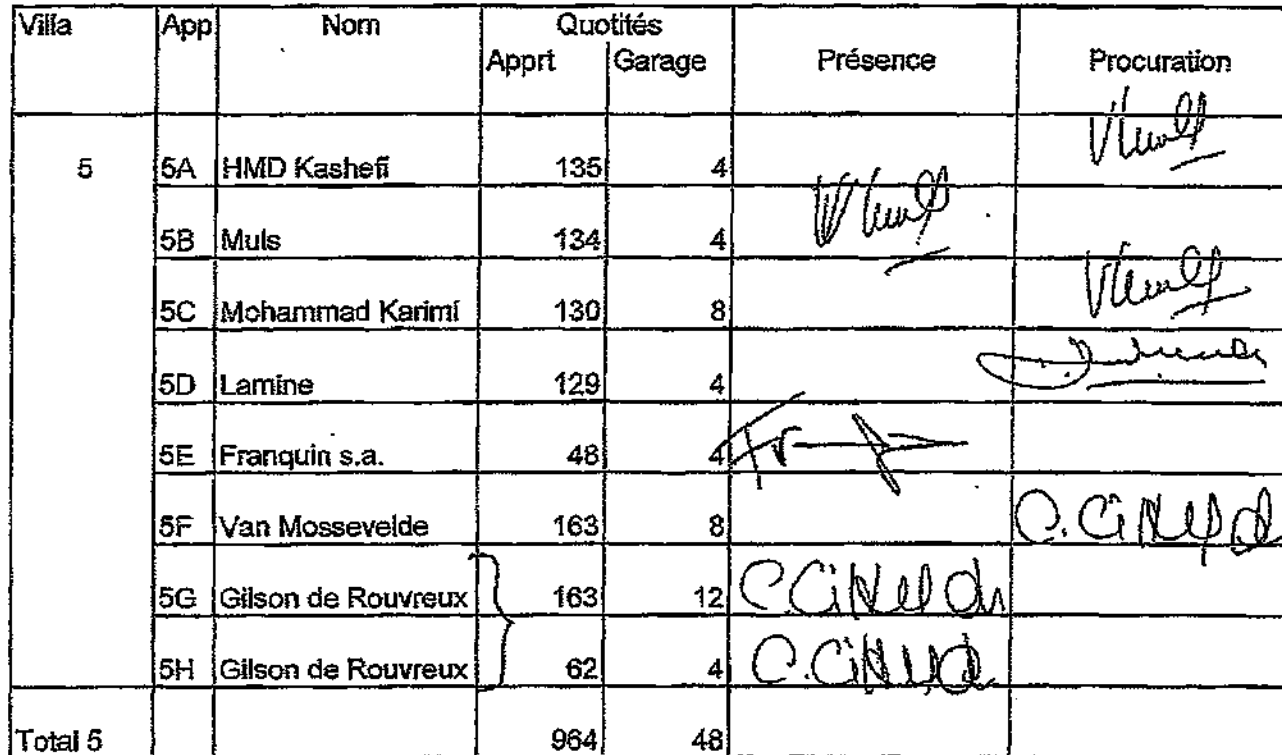 Villa App Nom Quotités
Apprt Garage Présence Procuration
5 5A HMD Kashefi 135 4
5B Muls 134 4
5C Mohammad Karimi 130 8
5D Lamine 129 4
5E Franquin s.a. 48 4
5F Van Mossevelde 163 8
5G Gilson de Rouvreux 163 12
5H Gilson de Rouvreux 62 4
Total 5 964 48